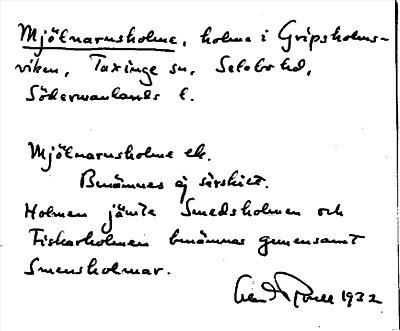 Mjölnarnsholme, holme i Gripsholms-
viken, Taxinge sn, Selebo hd,
Södermanlands l.
Mjölnarnsholme ek.
Benämnes ej särskilt.
Holmen jämte Smedsholmen och
Fiskarholmen benämnas gemensamt
Smensholmar.
1932